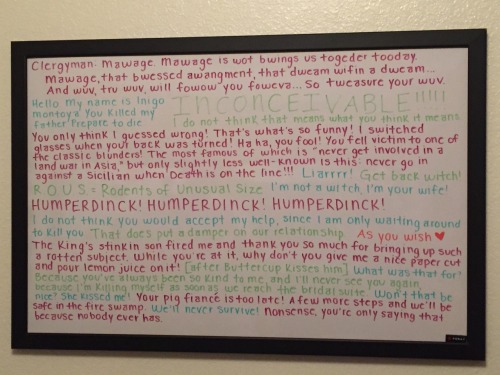 Clergyman: Mawage. Mawage is wot bwings us togeder tooday.
Mawage, that bwessed awangment, that dweam wifin a dweam...
And wuv, tru wuv, will fowow you foweva... So tweasure your wuv.
Hello My name is Inigo
montoya You Killed my
father Prepare to die
INCONCEIVABLE!!!!!
I do not think that means what you think it means
You only think I guessed wrong! That's what's so funny! I switched
glasses when your back was turned! Ha ha, you fool! You fell victim to one of
the classic blunders! The most famous of which is "never get involved in a
land war in Asia," but only slightly less well-known is this: never go in
against a Sicilian when Death is on the line!!! Liarrr! Get back witch!
R.O.U.S. = Rodents of Unusual Size I'm not a witch, I'm your wife!
HUMPERDINCK! HUMPERDINCK! HUMPERDINCK!
I do not think you would accept my help, since I am only waiting around
to Kill you That does put a damper on our relationship. As you wish ♥
The King's stinkin son fired me and thank you so much for bringing up such
a rotten subject. While you're at it, why don't you give me a nice paper cut
and pour lemon juice on it! [after Buttercup Kisses him] What was that for?
Because you've always been so kind to me, and I'll never see you again,
because I'm Killing myself as soon as we reach the bridal suite. Won't that be
nice? She Kissed me! Your pig fiance is too late! A few more steps and we'll be
safe in the fire swamp. We'll never survive! Nonsense, you're only saying that
because nobody ever has.